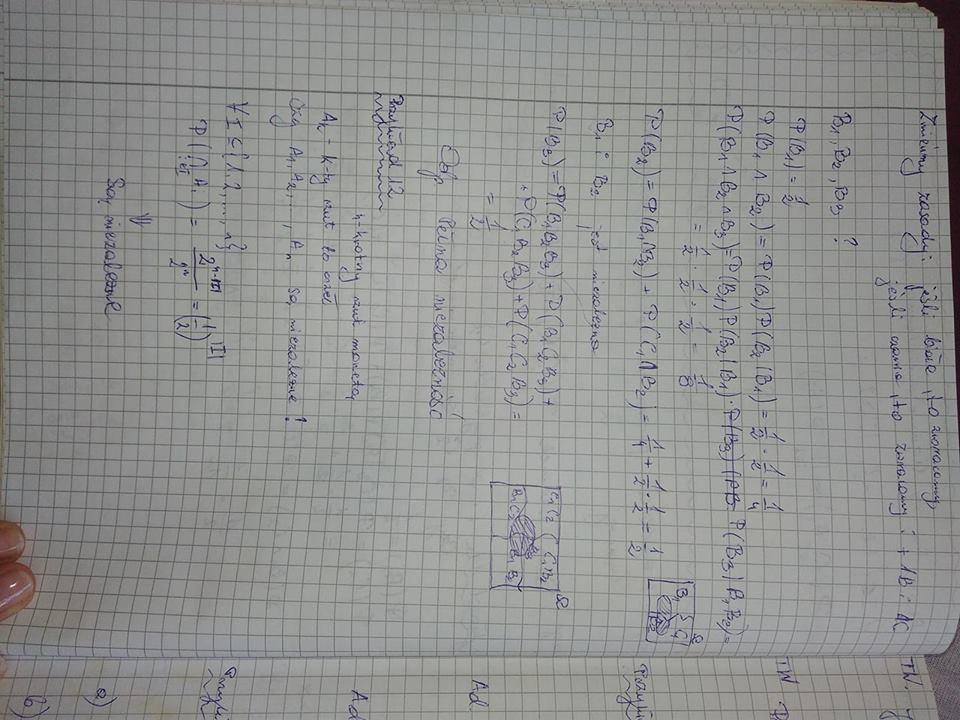 Zmieńmy zasady: jeśli białe, to zwracamy,
jeśli czarne, to zwracamy i + 1B i 1C
B₁, B₂, B₃ ?
P(B₁) = 1/2
P(B₁ ∩ B₂) = P(B₁)P(B₂|B₁) = 1/2 · 1/2 = 1/4
P(B₁∩B₂∩B₃) = P(B₁)P(B₂|B₁) · P(B₃|B₁B₂) =
= 1/2 · 1/2 · 1/2 = 1/8
Ω
B₁ C₁
B₂
P(B₂) = P(B₁∩B₂) + P(C₁∩B₂) = 1/4 + 1/2 · 1/2 = 1/2
B₁ i B₂ jest niezależne
P(B₃) = P(B₁B₂B₃) + P(B₁C₂B₃) +
+ P(C₁B₂B₃) + P(C₁C₂B₃) =
= 1/2
Ω
C₁C₂ C₁B₂
B₃
B₁C₂ B₁B₂
Odp. Pełna niezależność
Przykład 12
n-krotny rzut monetą,
Aₖ - k-ty rzut to orzeł
Czy A₁, A₂, ..., Aₙ są niezależne?
∀ I ⊆ {1, 2, ..., n}
P(⋂_{i∈I} Aᵢ) = 2^{n-|I|}/2ⁿ = (1/2)^{|I|}
⇓
Są niezależne
TW.
TW
Ad.
Ad
a)
b)